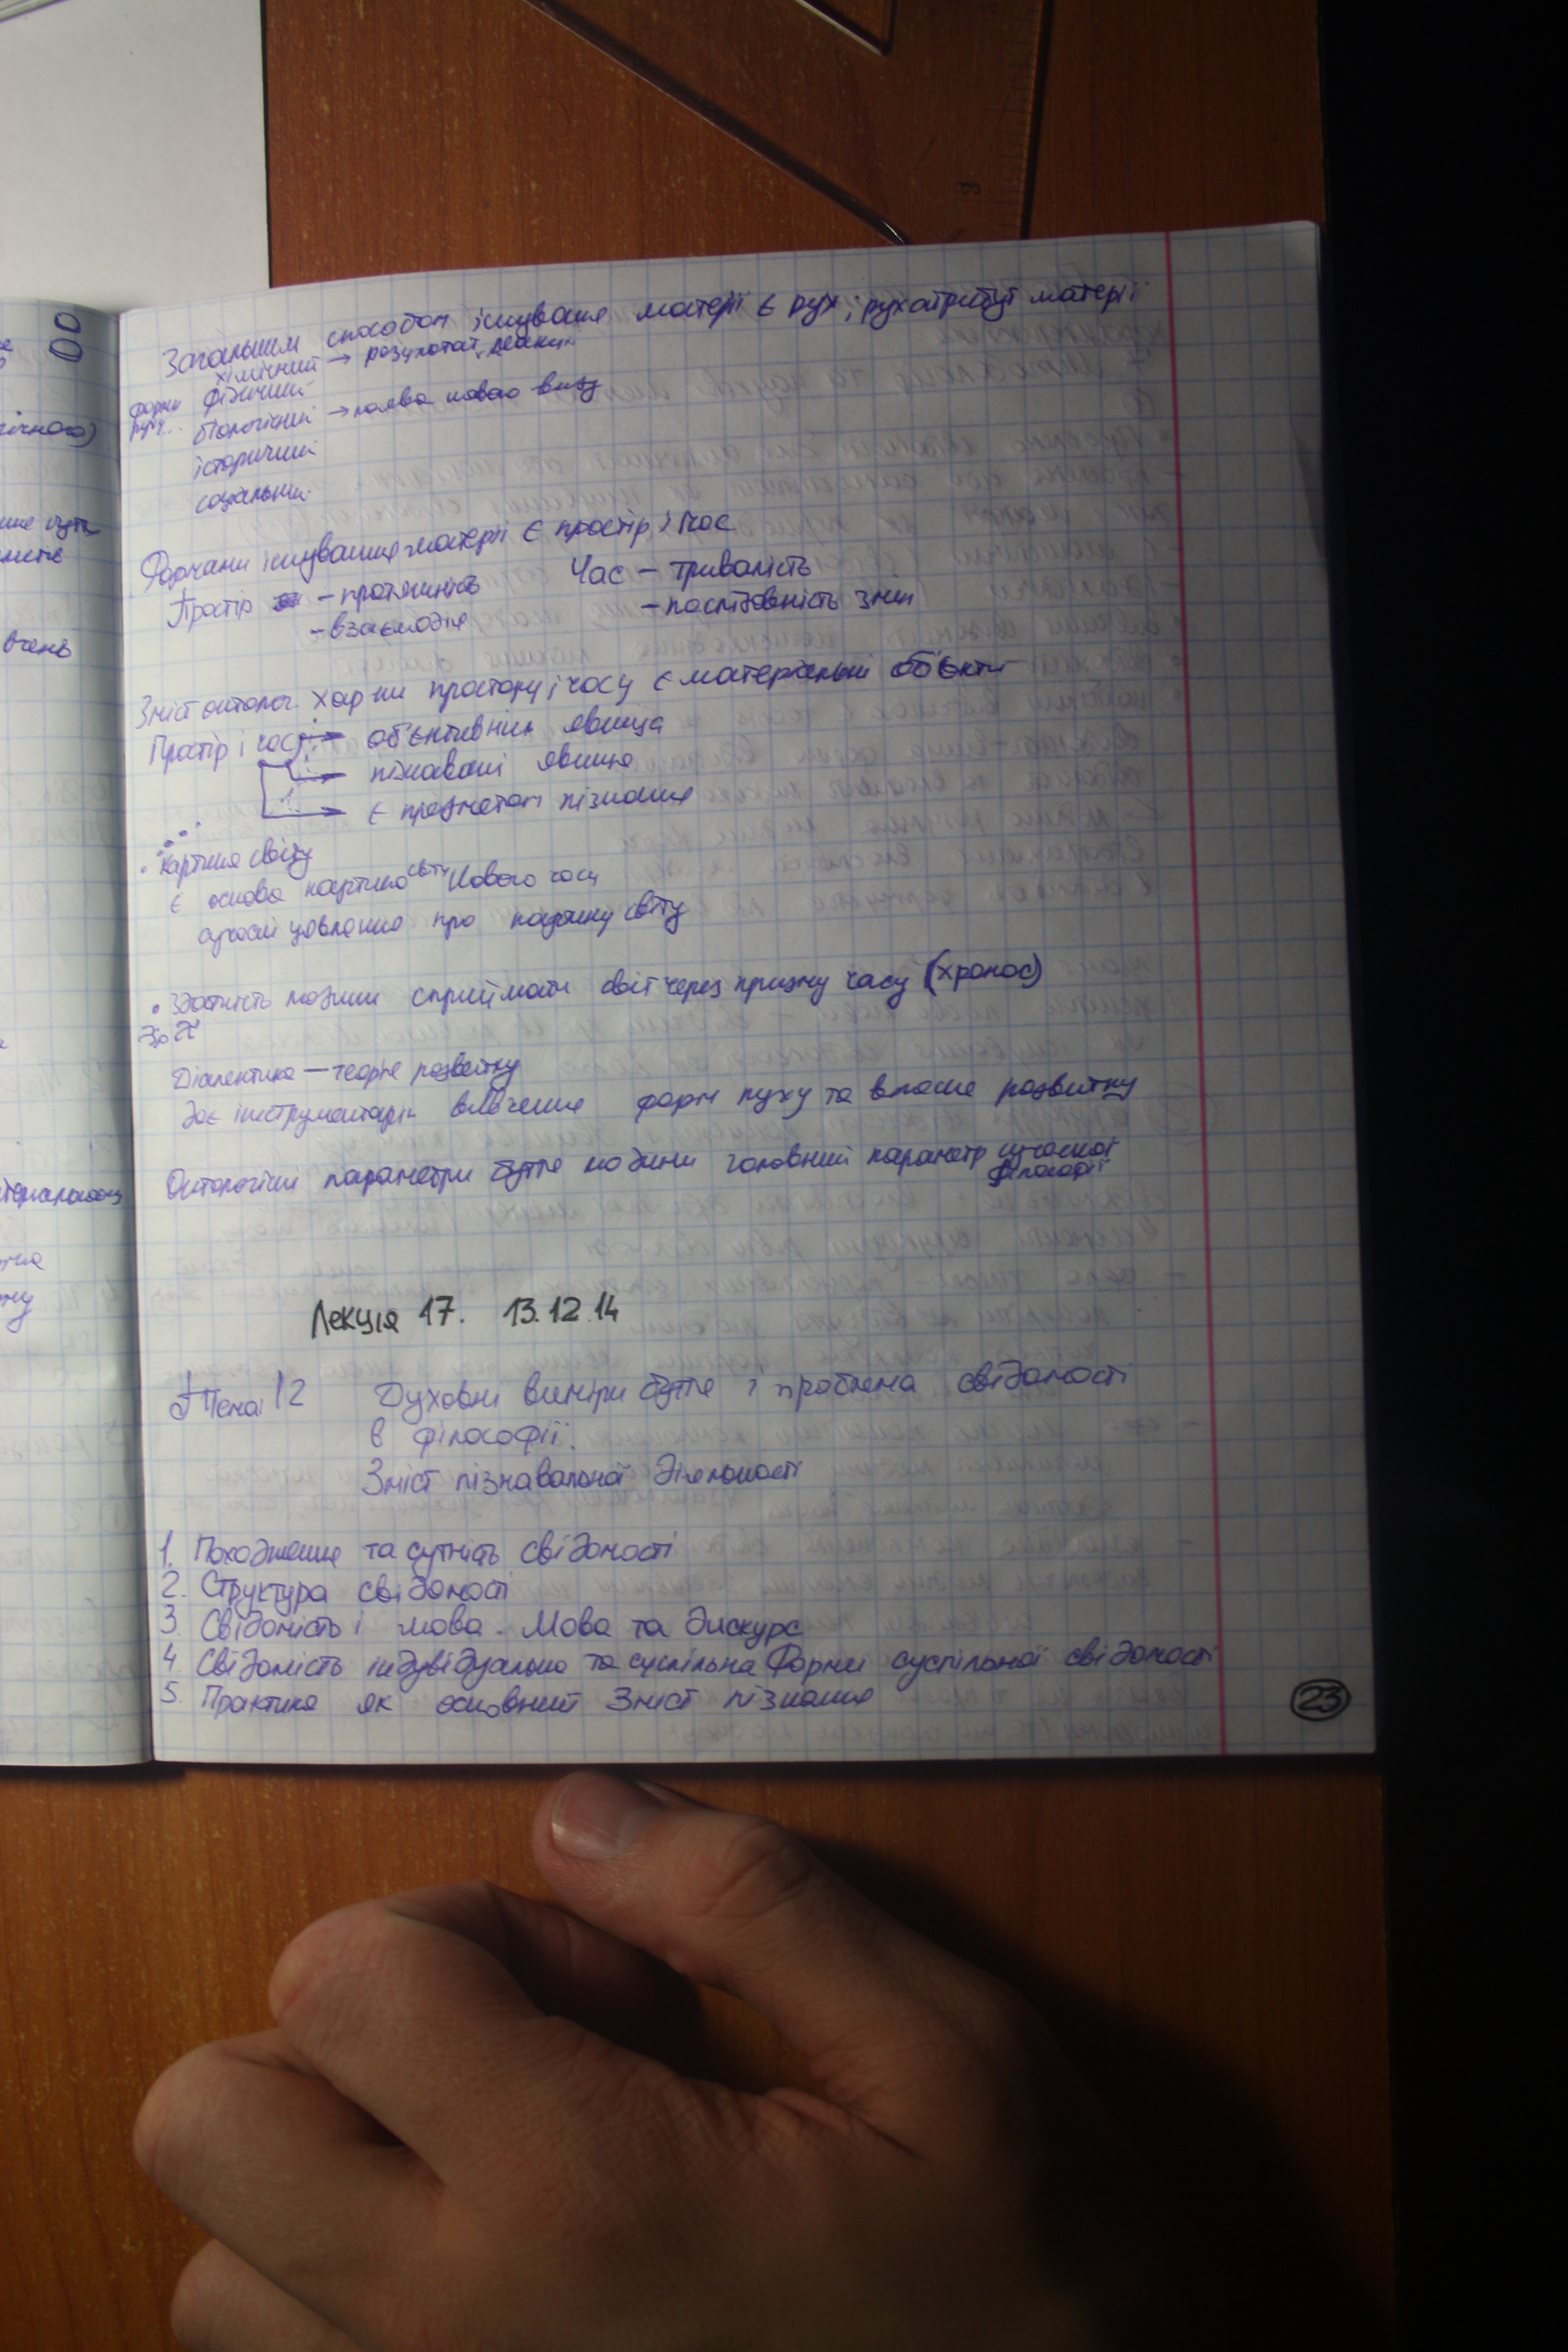 Загальним способом існування матерії є рух, рух атрибут матерії
хімічний → результат реакції
форми руху
фізичний
біологічний → поява нового виду
історичний
соціальний
Формами існування матерії є простір і час
Простір – протяжність
– взаємодія
Час – тривалість
– послідовність змін
Зміст онтолог. хар-ки простору і часу є матеріальні об'єкти
Простір і час → об'єктивні явища
→ пізнавані явища
→ є предметом пізнання
картина світу
є основа картина світу Нового часу
сучасні уявлення про картину світу
• Здатність людини сприймати світ через призму часу (хронос)
Діалектика — теорія розвитку
дає інструментарій вивчення форм руху та вияв розвитку
Онтологічні параметри буття людини головний параметр сучасної
філософії
Лекція 17. 13.12.14
Тема 12 Духовні виміри буття і проблема свідомості
в філософії.
Зміст пізнавальної діяльності
1. Походження та сутність свідомості
2. Структура свідомості
3. Свідомість і мова. Мова та дискурс
4. Свідомість індувідуальна та суспільна Форми суспільної свідомості
5. Практика як основний Зміст пізнання
23